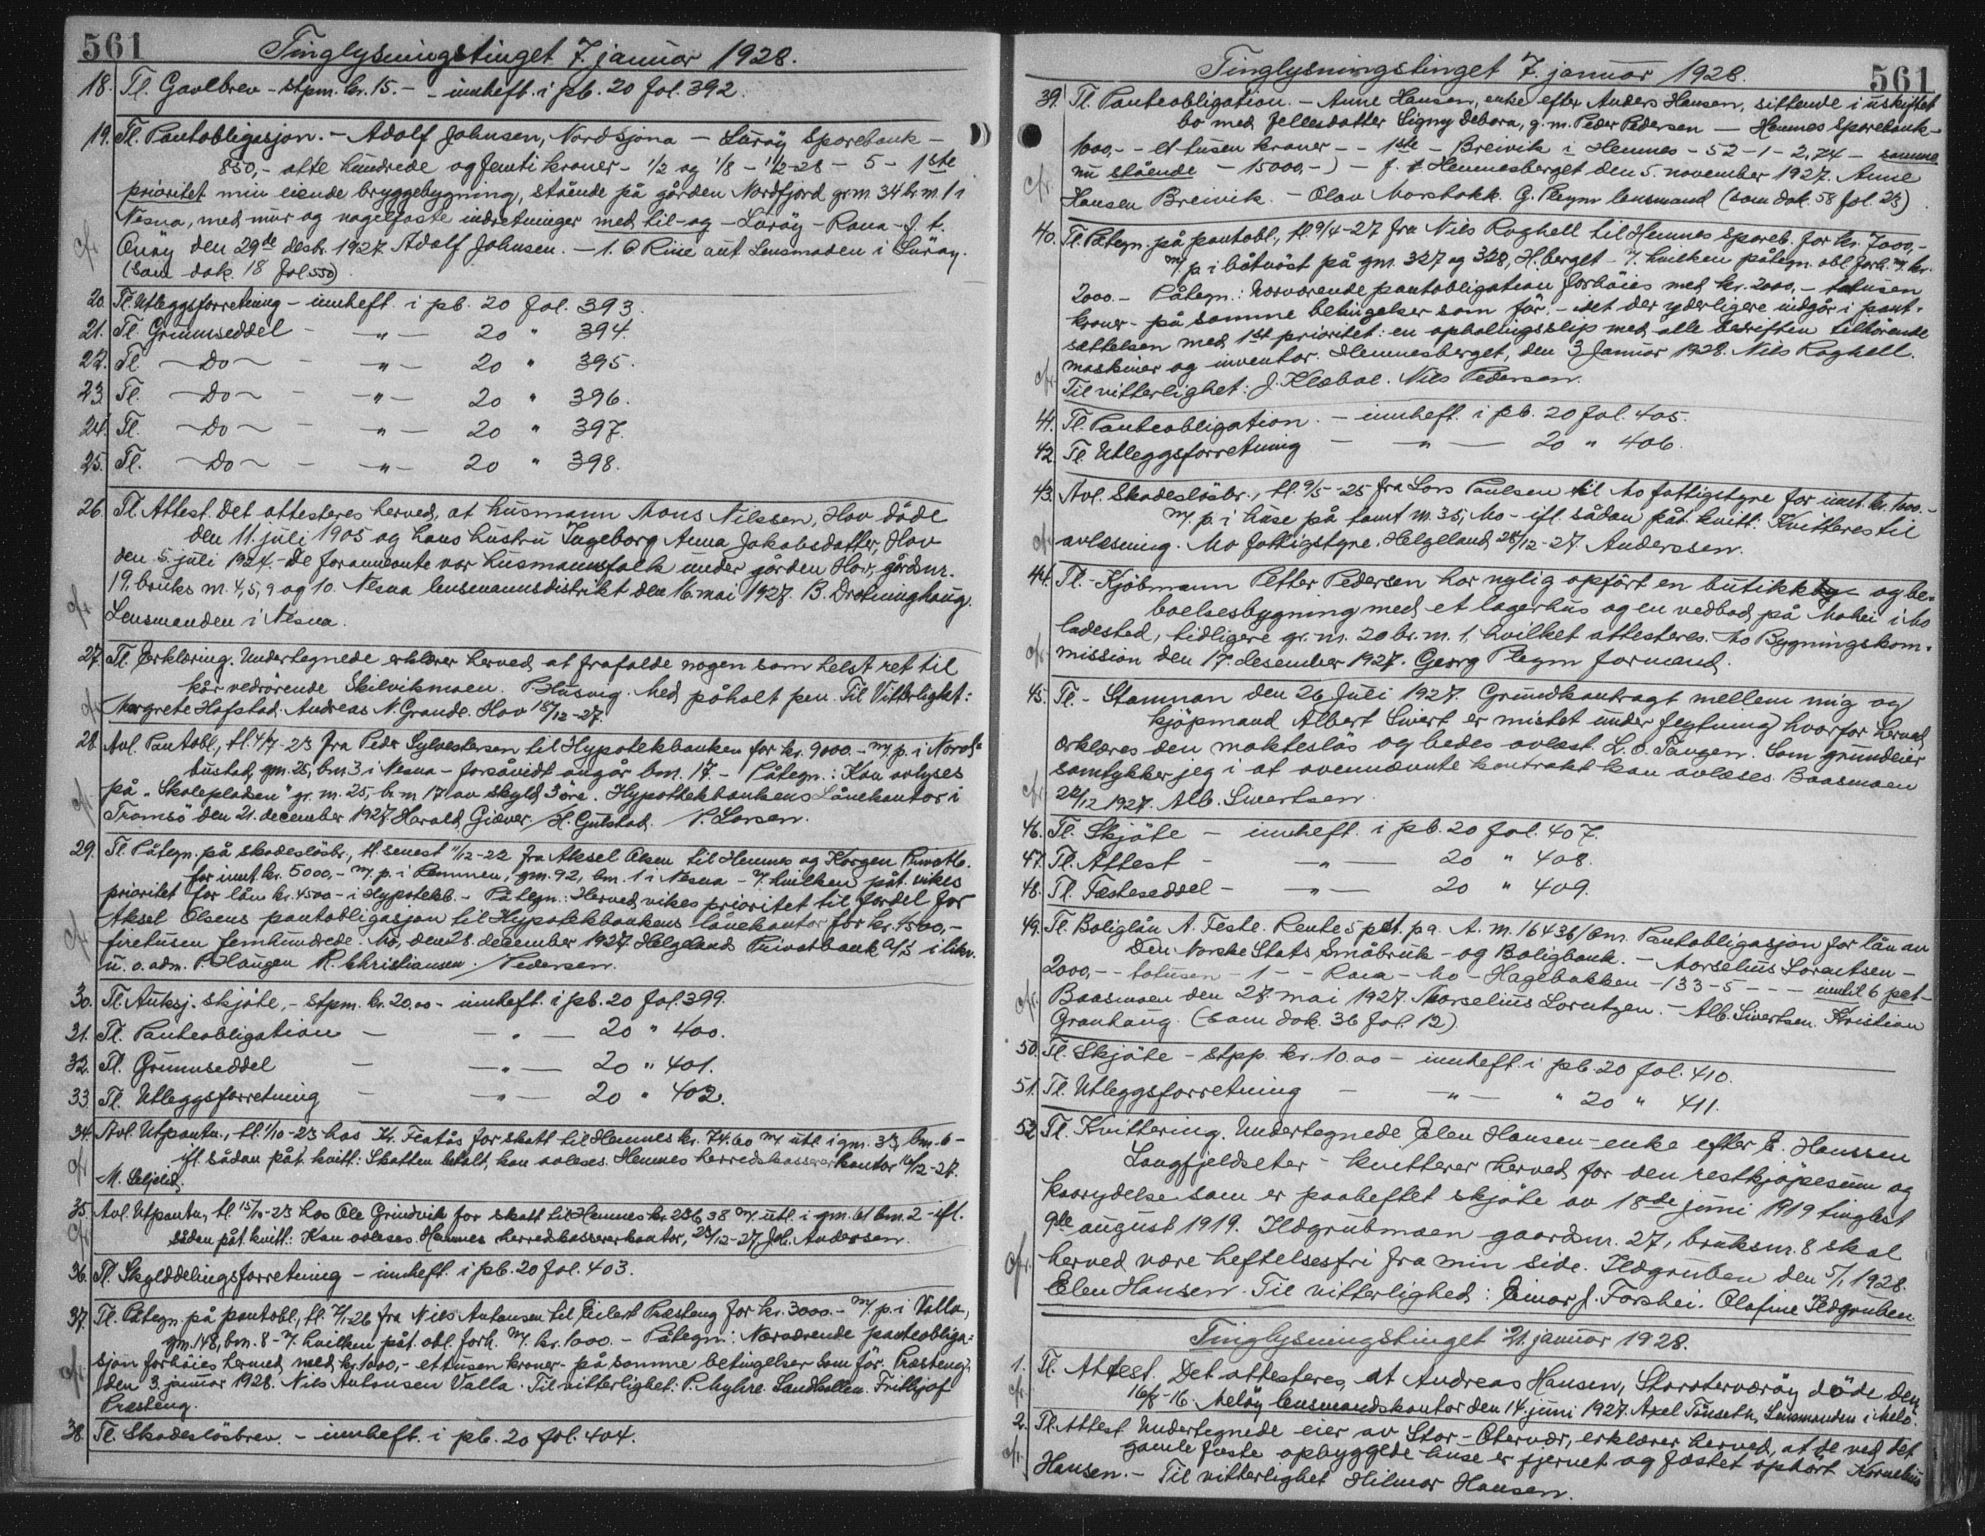 561
Tinglysningstinget 7. januar 1928.
18. Tl. Gavebrev - stpm. kr. 15.- - innheft. i pb. 20 fol. 392.
19. Tl. Pantobligasjon. - Adolf Johnsen, Nordsjona - Lurøy Sparebank -
850,- otte hundrede og femti kroner - 1/2 og 1/8 - 1/2-28 - 5 - 1ste
prioritet min eiende bryggebygning, stående på gården Nordfjord gr. nr. 34 br. nr. 1 i
Nesna, med mur og nagelfaste indretninger med til- og - Lurøy - Rana - f. t.
Onøy den 29de desbr. 1927. Adolf Johnsen. - I. C. Riise aut Lensmaden i Lurøy.
cfr. (Sam dok. 18 fol. 550)
20. Tl. Utleggsforretning - innheft. i pb. 20 fol. 393.
21. Tl. Grunnseddel - - " - 20 " 394.
22. Tl. - Do - - " - 20 " 395.
23. Tl. - Do - - - " - 20 " 396.
24. Tl. - Do - - - " - 20 " 397.
25. Tl. - Do - - - " - 20 " 398.
26. Tl. Attest. Det attesteres herved, at husmann Mons Nilssen, Hov døde
den 11. juli 1905 og hans hustru Ingeborg Anna Jakobsdatter, Hov
den 5. juli 1924. - De forannevnte var husmannsfolk under gården Hov, gårdsnr.
19, bruks nr. 4, 5, 9 og 10. Nesna lensmannsdistrikt den 16. mai 1927. B. Dronninghaug.
cfr. Lensmanden i Nesna.
27. Tl. Erklæring. Undertegnede erklærer herved, at frafalde nogen som helst ret til
kår vedrørende Skilvikmoen. P. Husvig. Med påholt pen. Til Vitterlighet:
cfr. Margrete Hofstad. Andreas N. Grande. Hov 18/12-27.
28. Avl. Pantobl., tl. 4/7-23 fra Peder Sylvestersen til Hypotekbanken for kr. 9000.- m/ p. i Nord-
bustad, gnr. 25, bnr. 3 i Nesna - forsåvidt angår bnr. 17. - Påtegn.: Kan avlyses
på "Skolepladsen" gr. nr. 25, br. nr. 17 av skyld 3 øre. Hypotekbankens Lånekontor i
cfr. Tromsø den 21. december 1927 Harald Giæver. / H. Gulstad. P. Larsen.
29. Tl. Påtegn. på skadesløsbr., tl. senest 11/12-22 fra Aksel Olsen til Hemnes og Korgen Privatb.
for inntil kr. 5000,- m/ p. i Remmen, gnr. 92, bnr. 1 i Nesna - v. hvilken påt. vikes
prioritet for lån kr. 4500 - i Hypotekb. - Påtegn.: Herved vikes prioritet til fordel for
Aksel Olsens pantobligasjon til Hypotekbankens lånekontor for kr. 4500,-
cfr. firetusen femhundrede. Mo, den 28. december 1927. Helgelands Privatbank A/S i likv.
u. o. adm. P. Haugen R. Christiansen / Pedersen.
30. Tl. Auksj. skjøte, - stpm. kr. 20,00 - innheft. i pb. 20 fol. 399.
31. Tl. Panteobligation - - " - 20 " 400.
32. Tl. Grunnseddel - - " - 20 " 401.
33. Tl. Utleggsforretning - - " - 20 " 402.
34. Avl. Utpantn., tl. 1/10-23 hos Kr. Featås for skatt til Hemnes kr. 74.60 m/ utl. i gnr. 33 bnr. 6 -
ifl. sådan påt. kvitt: Skatten betalt, kan avleses. Hemnes herredskassererkontor 16/12-27.
cfr. M. Seljelid.
35. Avl. Utpantn., tl. 15/10-23 hos Ole Grindvik for skatt til Hemnes kr. 236,38 m/ utl. i gnr. 61 bnr. 2 - ifl.
cfr. sådan påt. kvitt: Kan avleses. Hemnes herredskassererkontor, 23/12-27, Joh. Andersen.
36. Tl. Skylddelingsforretning - innheft. i pb. 20 fol. 403.
37. Tl. Påtegn. på pantobl., tl. 7/1-26 fra Nils Antonsen til Eilert Præsteng for kr. 3000.- m/ p. i Valla,
gnr. 148, bnr. 8 - v. hvilken påt. obl. forh. m/ kr. 1000. - Påtegn.: Nærværende panteobliga-
sjon forhøies hermed med kr. 1000,- ettusen kroner - på samme betingelser som før. Præsteng,
cfr. den 3. januar 1928. Nils Antonsen Valla. Til vitterlighet: P. Myhre. Sandhollen. Frithjof
Præsteng.
38. Tl. Skadesløsbrev. - innheft. i pb. 20 fol. 404.
Tinglysningstinget 7. januar 1928. 561
39. Tl. Panteobligation. - Anne Hansen, enke efter Anders Hansen, sittende i uskiftet
bo med fellesdatter Signy Debora, g. m. Peder Pedersen - Hemnes Sparebank -
1000,- - et tusen kroner - - 1ste - Breivik i Hemnes - 52 - 1 - 2,74 - samme
nu stående - 15000,- ) - f. t. Hemnesberget den 5. november 1927. Anne
cfr. Hansen Breivik. - Olav Morstokk. G. Pleym lensmand (Sam dok. 58 fol. 23)
40. Tl. Påtegn. på pantobl., tl. 9/4-27 fra Nils Roghell til Hemnes Spareb. for kr. 7000,-
m/ p. i båtnøst på gnr. 327 og 328, H.berget - v. hvilken påtegn. obl. forh. m/ kr.
2000.- Påtegn.: Nærværende pantobligation forhøies med kr. 2000,- totusen
kroner - på samme betingelser som før. - idet der yderligere indgår i pant-
sættelsen med 1st prioritet: en ophalingsslip med alle bedriften tilhørende
maskiner og inventar. Hemnesberget, den 3 Januar 1928. Nils Roghell.
cfr. Til vitterlighet: J. Klæboe. Nils Pedersen.
41. Tl. Panteobligation. - innheft. i pb. 20 fol. 405.
42. Tl. Utleggsforretning - - " - 20 " 406.
43. Avl. Skadesløsbr., tl. 9/5-25 fra Lars Paulsen til Mo fattigstyre for inntil kr. 1000.-
m/ p. i huse på tomt nr. 35, Mo - ifl. sådan påt. kvitt: Kvitteres til
cfr. avlæsning. Mo fattigstyre, Helgeland 28/12-27. Anderssen.
44. Tl. - Kjøbmann Petter Pedersen har nylig opført en butikk og be-
boelsesbygning med et lagerhus og en vedbod på Mohei i Mo
ladested, tidligere gr. nr. 20 br. nr. 1, hvilket attesteres. Mo Bygningskom-
cfr. mission den 17. desember 1927. Georg Pleym formand.
45. Tl. - Stamnan den 26 Juli 1927. Grundkontragt mellem mig og
kjøpmand Albert Sivert er mistet under flytning, hvorfor herved
erklæres den maktesløs og bedes avlæst. L. O. Tangen. Som grundeier
samtykker jeg i at ovennævnte kontrakt kan avlæses. Baasmoen
cfr. 22/12 1927. Alb. Sivertsen.
46. Tl. Skjøte - innheft. i pb. 20 fol. 407.
47. Tl. Attest - - " - 20 " 408.
48. Tl. Festeseddel - - " - 20 " 409.
49. Tl. Boliglån A. Feste. Rente 5 pct. p. a. A. nr. 16436/Bm. Pantobligasjon for lån av
Den Norske Stats Småbruk- og Boligbank. - Morselius Lorentsen -
2000,- - totusen - 1 - - Rana - Mo - Hagebakken - 133 - 5 - - - inntil 6 pct -
cfr. Baasmoen den 27. mai 1927. Morselius Lorntzen. - Alb. Sivertsen. Kristian
Granhaug. (Sam dok. 36 fol. 12).
50. Tl. Skjøte - stpp. kr. 10.00 - innheft. i pb. 20 fol. 410.
51. Tl. Utleggsforretning - - " - " 20 " 411.
52. Tl. Kvittering. Undertegnede Elen Hansen - enke efter E. Hanssen
Langfjeldseter - kvitterer herved for den restkjøpesum og
kaarydelse som er paaheftet skjøte av 18de juni 1919 tinglæst
9de august 1919. Ildgrubmoen gaardsnr. 27, bruksnr. 8 skal
cfr. herved være heftelsesfri fra min side. Ildgruben den 5/1 1928.
Elen Hansen. Til vitterlighed: Einar J. Forshei. Olafine Ildgruben.
Tinglysningstinget 21. januar 1928.
1. Tl. Attest. Det attesteres, at Andreas Hansen, Storoterværøy døde den
cfr. 16/8-16. Meløy lensmandskontor den 14. juni 1927. Axel Tønseth, Lensmanden i Meløy.
2. Tl. Attest Undertegnede eier av Stor-Otervær, erklærer herved, at de ved det
gamle fæste opbyggede huse er fjernet og fæstet ophørt Kornelius
cfr. Hansen. - Til vitterlighet Hilmar Hansen.